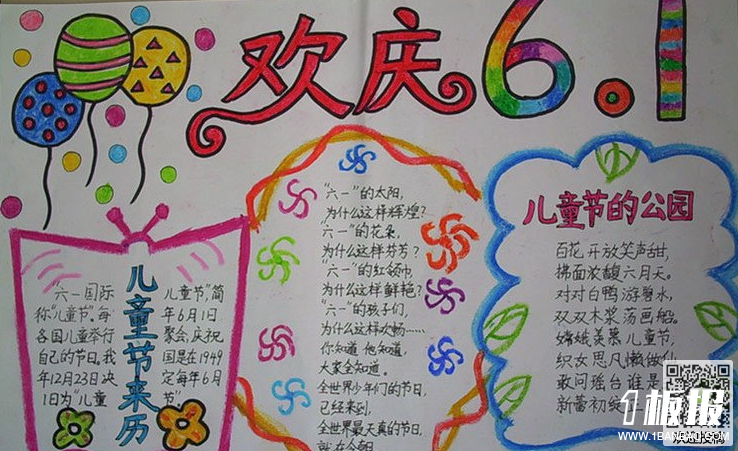 欢庆 6.1
儿童节来历
“六一国际 儿童节”,简
称“儿童节”。每 年6月1日
各国儿童举行 聚会,庆祝
自己的节日。我 国是在1949
年12月23日决 定每年6月
1日为“儿童 节”
“六一”的太阳,
为什么这样辉煌?
“六一”的花朵,
为什么这样芬芳?
“六一”的红领巾
为什么这样鲜艳?
“六一”的孩子们,
为什么这样欢畅……
你知道 他知道
大家全知道。
全世界少年们的节日,
已经来到,
全世界最天真的节日,
就在今朝
儿童节的公园
百花开放笑声甜,
拂面浓馥六月天。
对对白鸭游碧水,
双双木桨荡画船。
嫦娥羡慕儿童节,
织女思凡懒做仙
敢问瑶台谁是
新蕾初绽
1板报
WWW.1BANBAO.COM
欢迎投稿